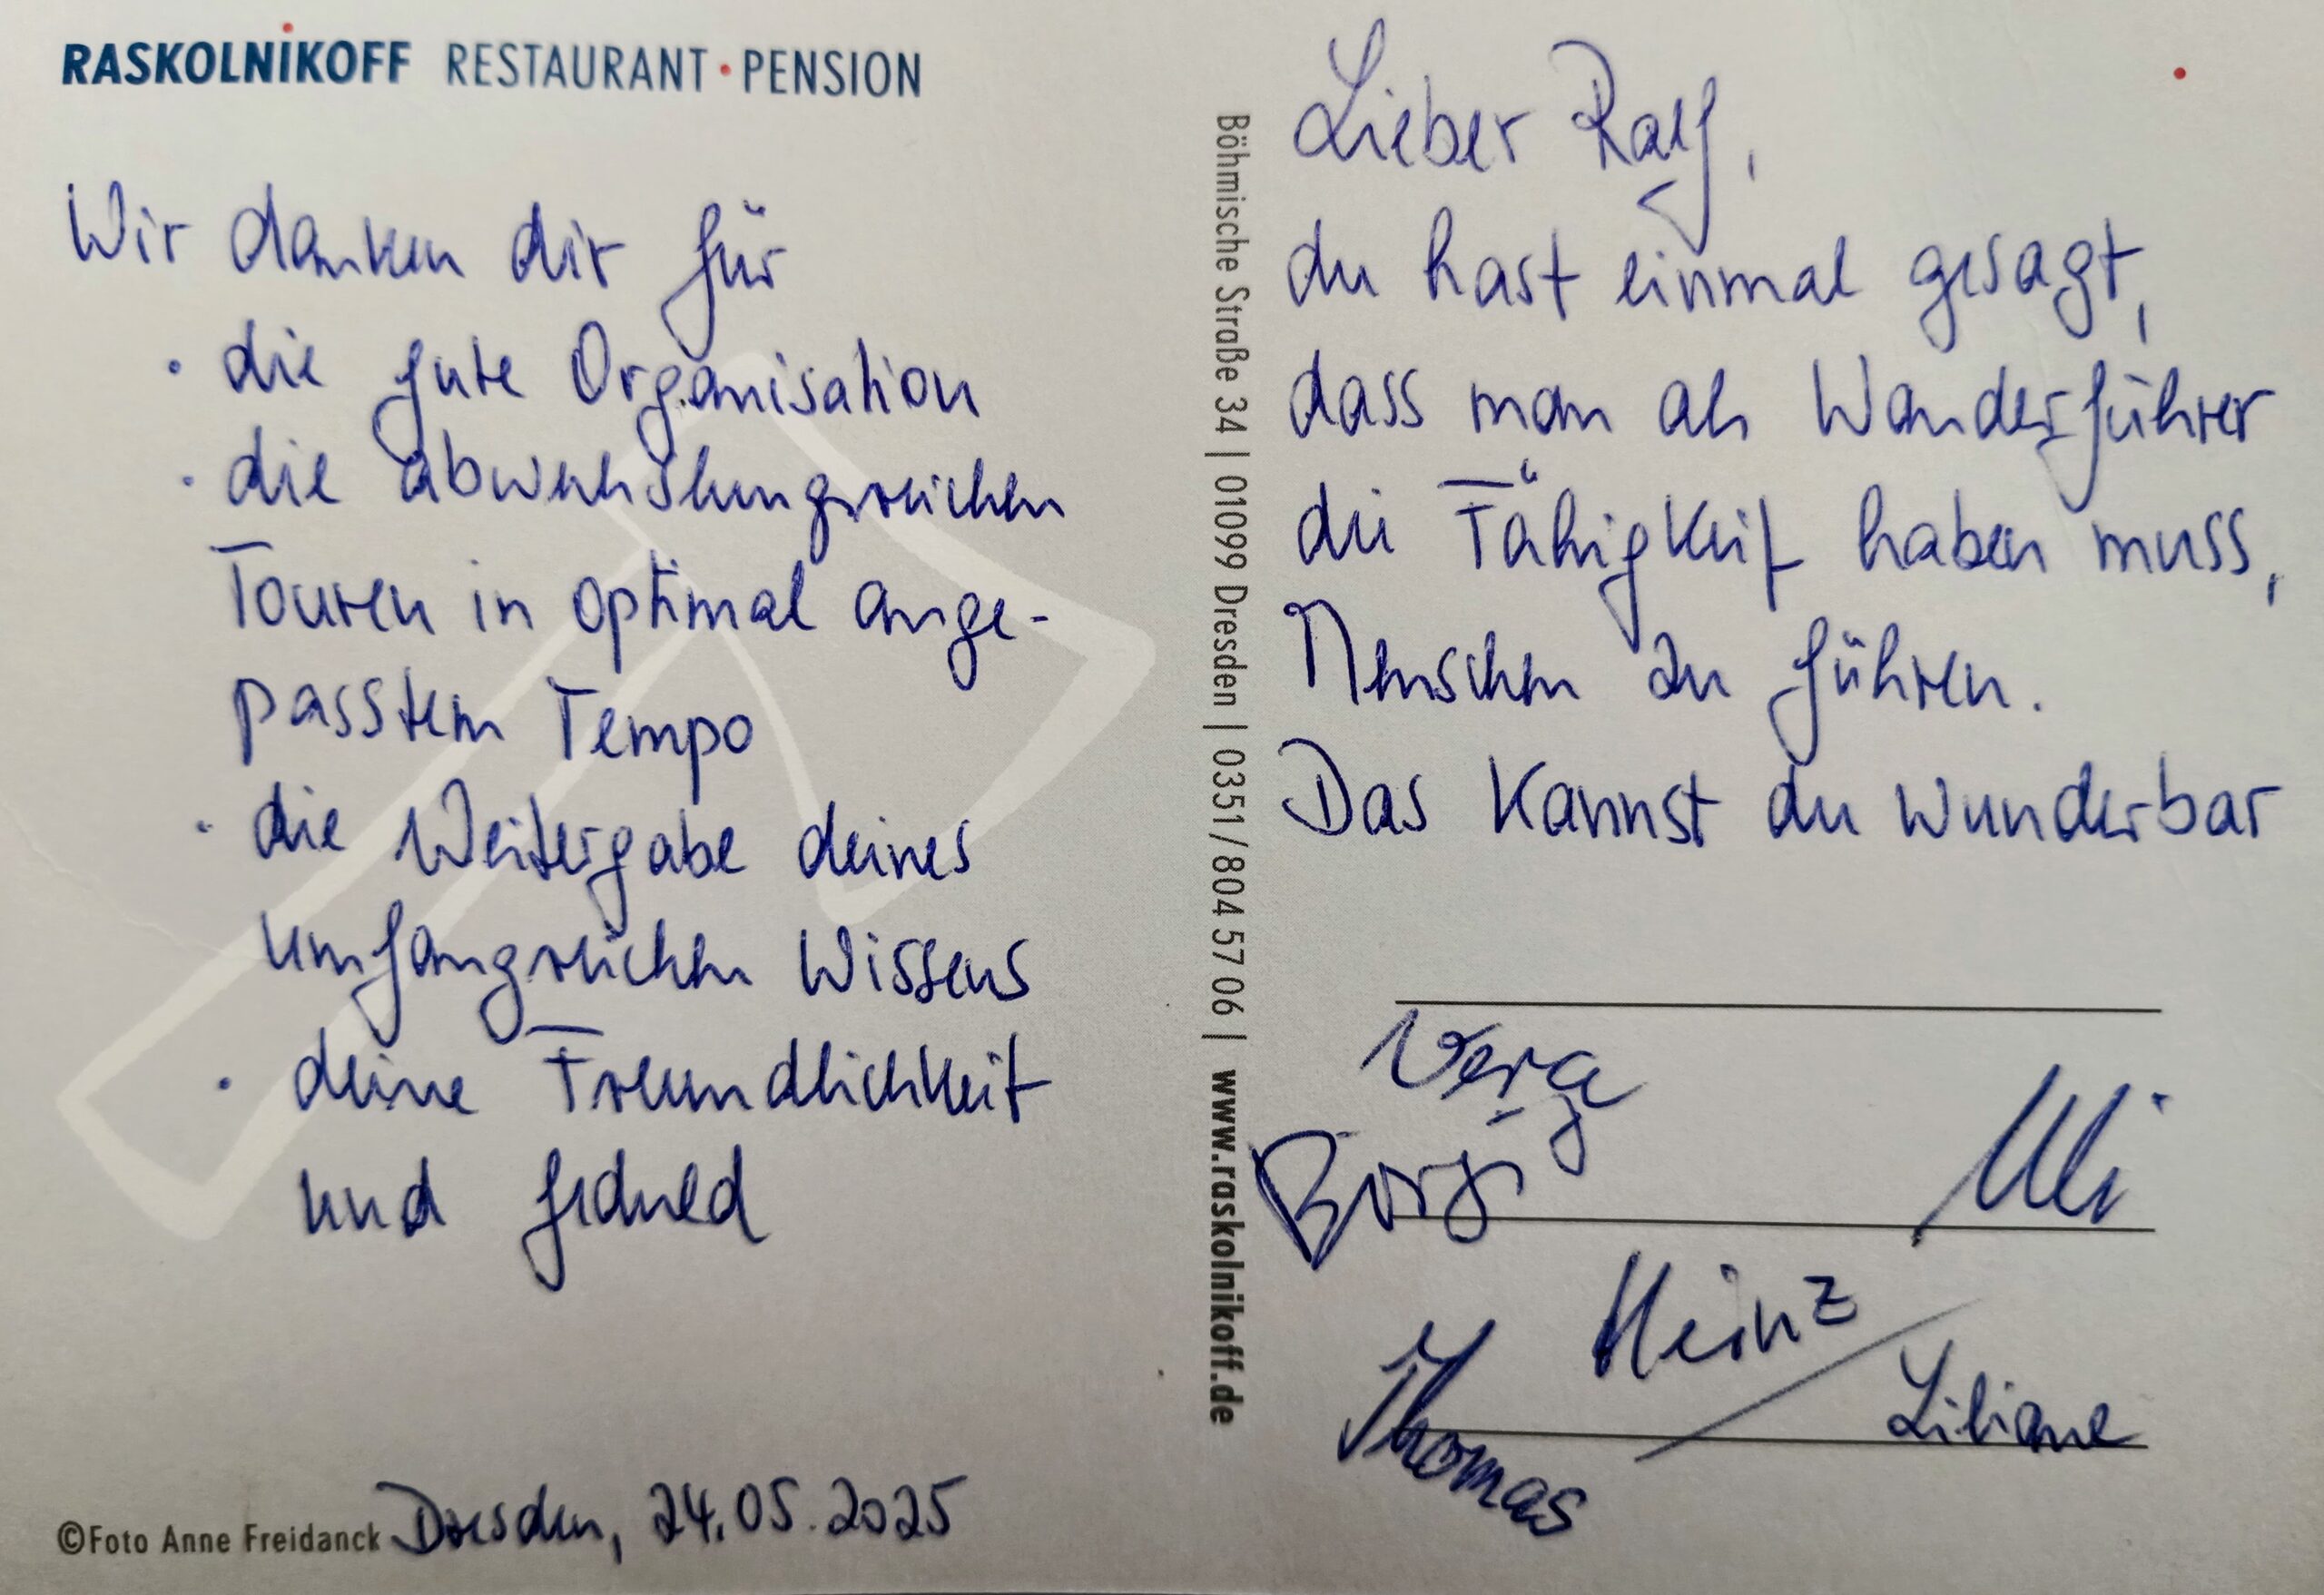 RASKOLNIKOFF RESTAURANT · PENSION
Wir danken dir für
· die gute Organisation
· die abwechslungsreichen
Touren in optimal ange-
passtem Tempo
· die Weitergabe deines
umfangreichen Wissens
· deine Freundlichkeit
und Geduld
Dresden, 24.05.2025
©Foto Anne Freidanck
Böhmische Straße 34 | 01099 Dresden | 0351/804 57 06 | www.raskolnikoff.de
Lieber Ralf,
du hast einmal gesagt,
dass man als Wanderführer
die Fähigkeit haben muss,
Menschen zu führen.
Das kannst du wunderbar
Vera
Uli
Heinz
Thomas
Liliane